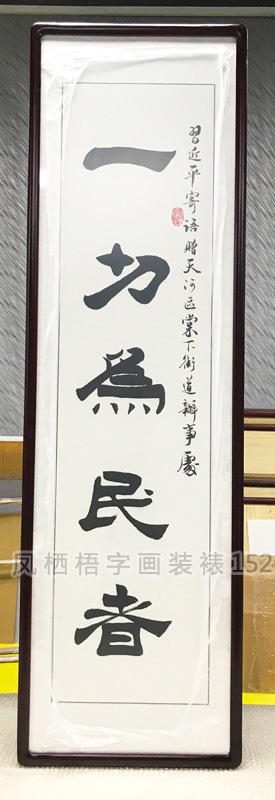 習近平寄语贈天河区棠下街道辦事處
一切為民者
凤栖梧字画装裱152